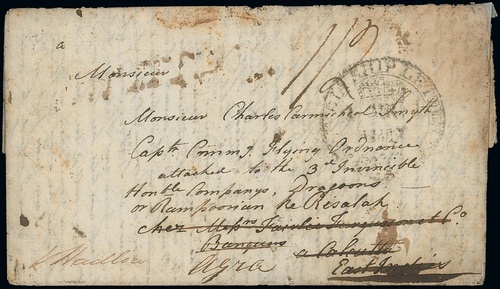 a
Monsieur
Monsieur Charles Carmichael Smyth
Captn Commg Flying Ordnance
attached to the 3d Invincible
Honble Companys, Dragoons
or Rampoorian ke Resalah
chez Messrs & Co.
Banquiers
a Calcutta
Agra
East Indies
SHIP LETTER